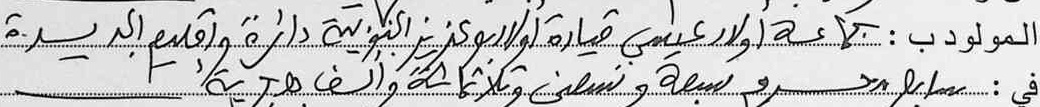 المولود ب: جماعة أولاد عيسى قيادة أولاد بوعزيز الجنوبية دائرة وإقليم الجديدة
في: سابع محرم سبعة وتسعين وثلاثمائة وألف هجرية